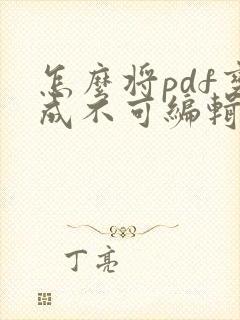 怎麼將pdf變
成不可編輯
丁亮